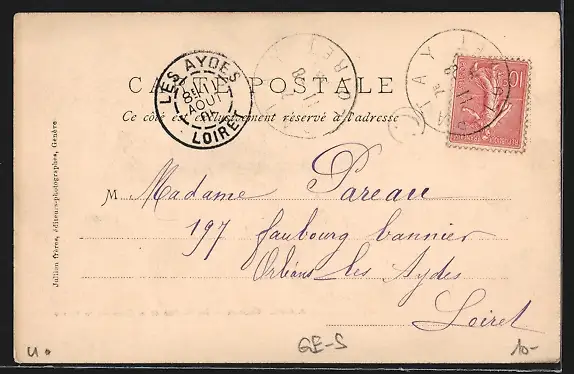 CARTE POSTALE
Ce côté est exclusivement réservé à l'adresse
LES AYDES
11
AOUT
04
LOIRET
10
M Madame Pareau
197 faubourg bannier
Orléans les Aydes
Loiret
Jullien frères, éditeurs-photographes, Genève
GE-S
10-